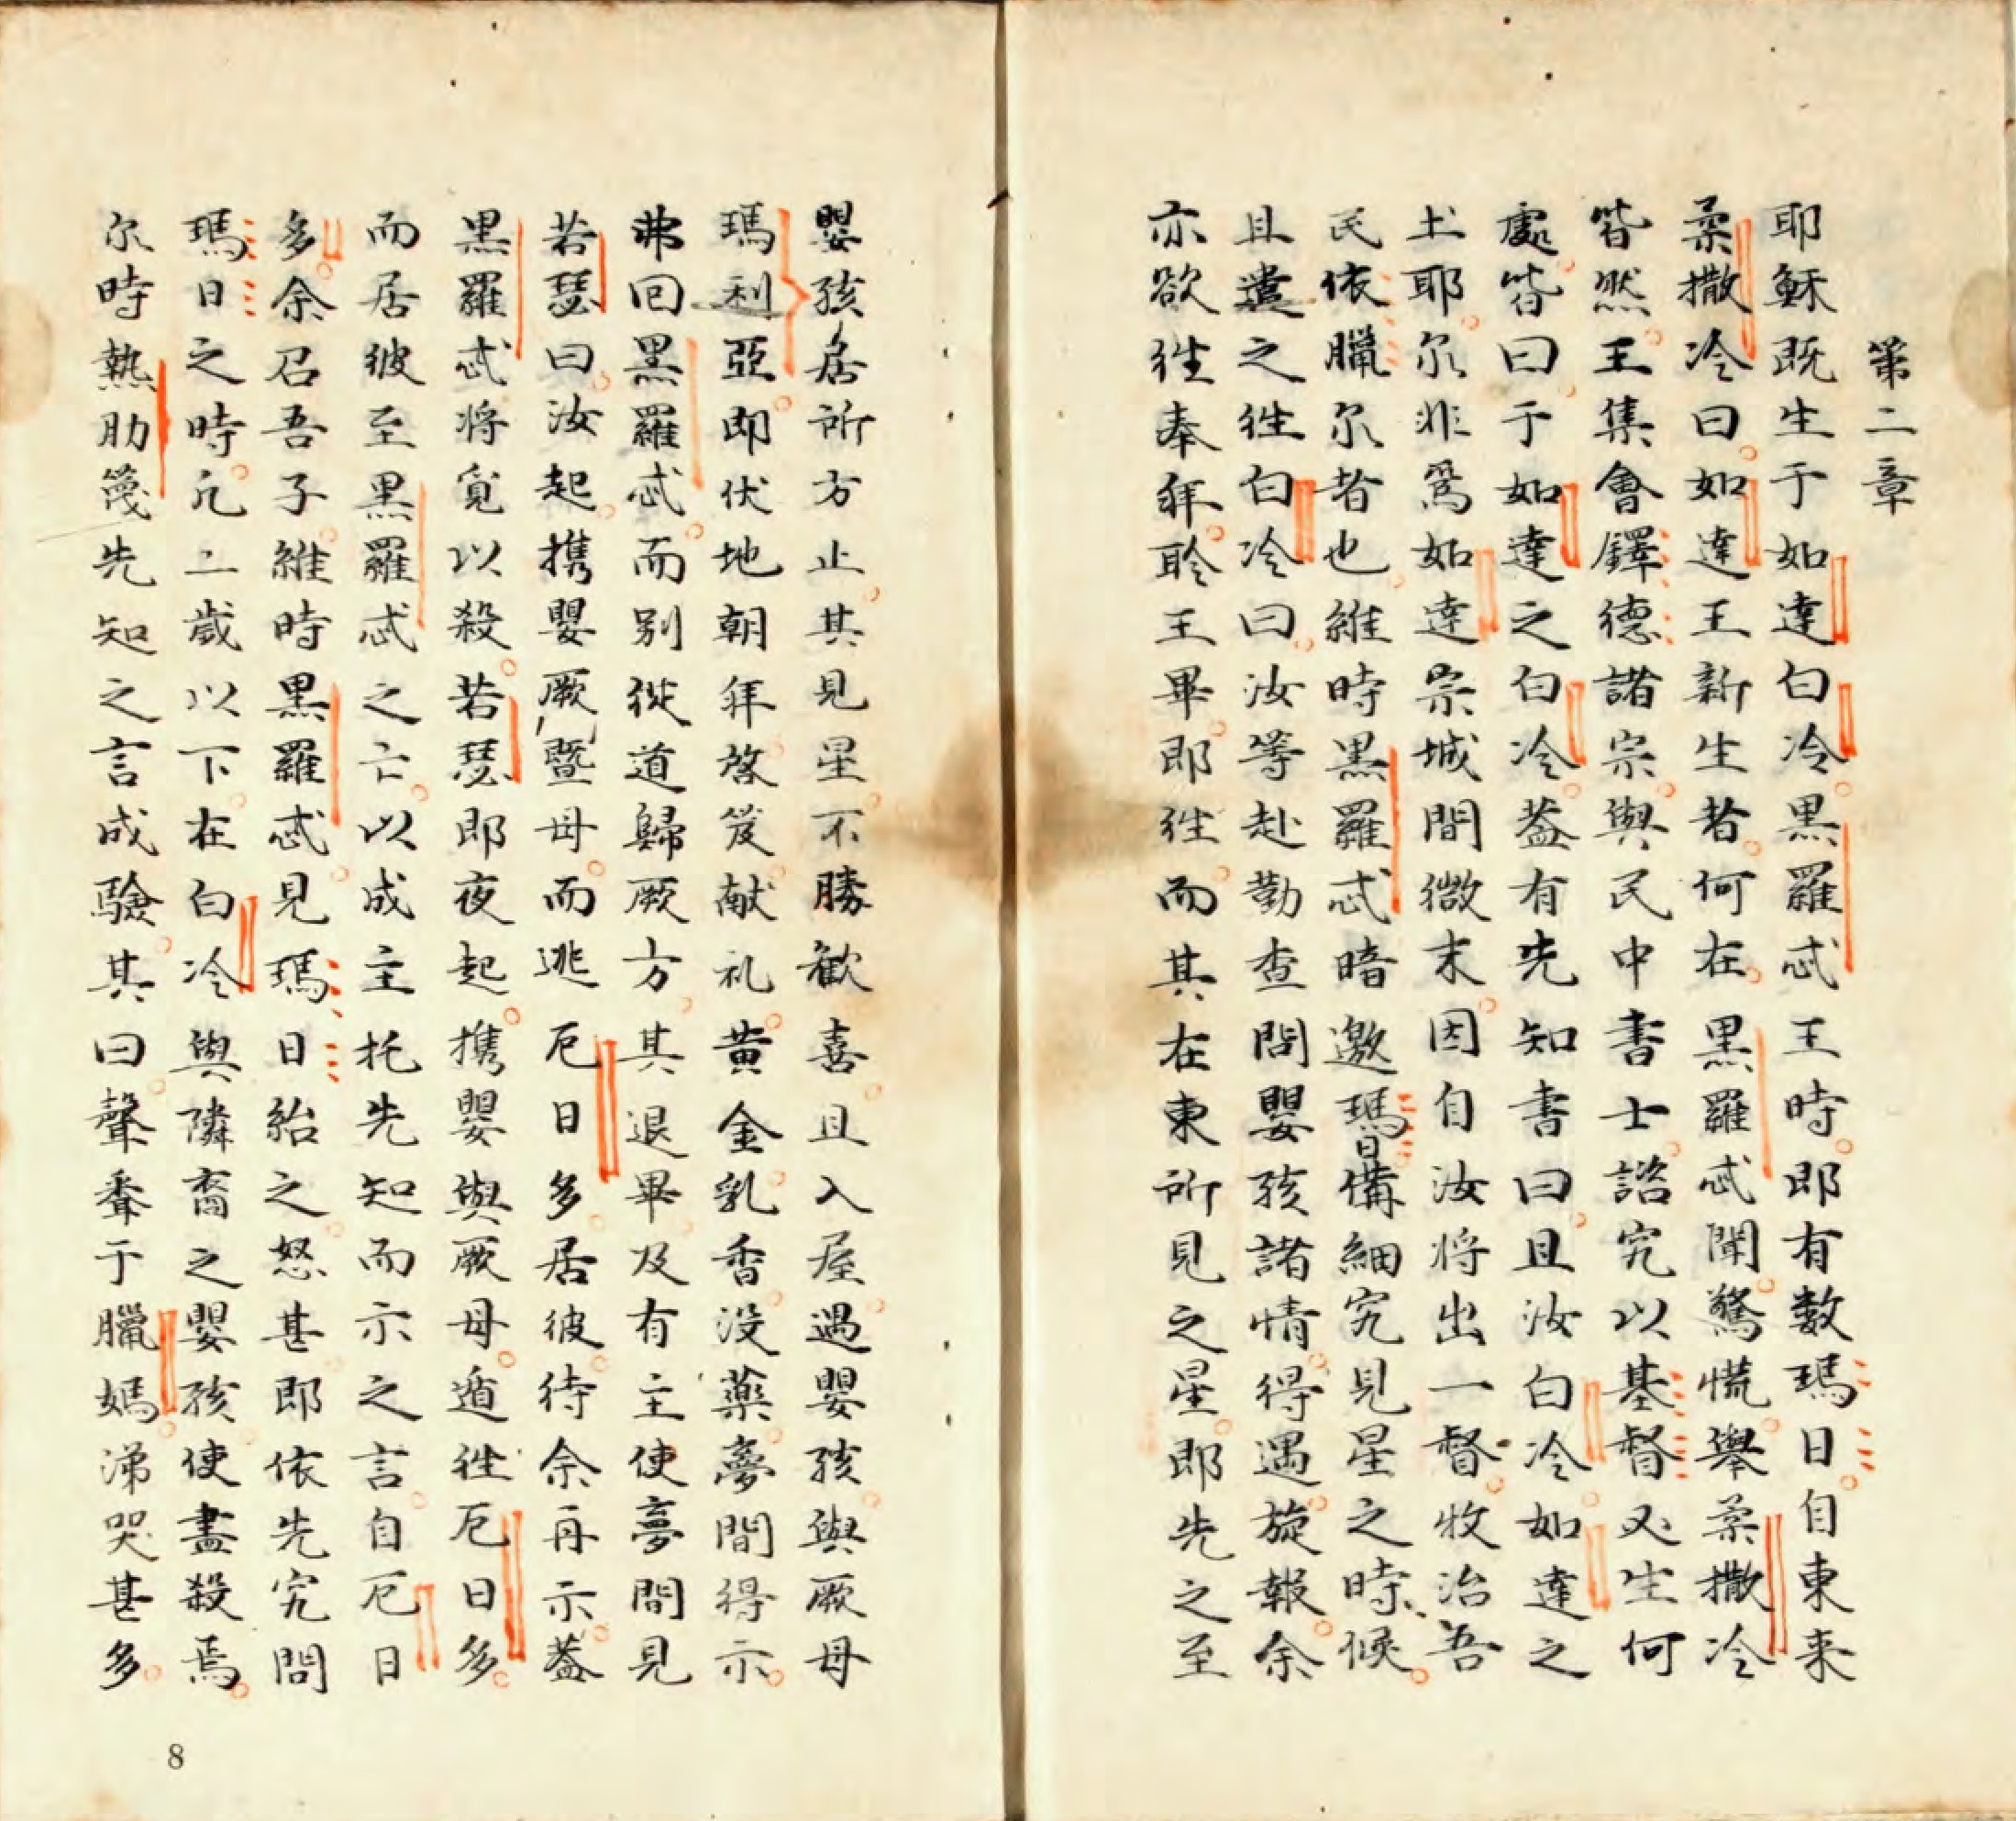 第二章
耶穌既生于如達白冷。黑羅忒王時。即有数瑪日。自東来
柔撒冷曰。如達王新生者。何在。黑羅忒聞。驚慌。舉柔撒冷
皆然。王集會鐸德諸宗。與民中書士。諮究以基督必生何
處。皆曰。于如達之白冷。葢有先知書曰。且汝白冷。如達之
土耶。尔非為如達宗城間微末。因自汝将出一督。牧治吾
民依臘尔者也。維時黑羅忒暗邀瑪日備細究見星之時候。
且遣之徃白冷曰。汝等赴勤查問嬰孩諸情。得遇。旋報余。
亦欲徃奉拜。聆王畢。即徃。而其在東所見之星。即先之至
嬰孩居所方止。其見星。不勝歓喜。且入屋。遇嬰孩。與厥母
瑪利亞。即伏地朝拜。啓笈。献礼。黄金。乳香。没藥。夢間得示。
弗回黑羅忒。而别從道歸厥方。其退畢。及有主使夢間見
若瑟曰。汝起。携嬰厥曁母。而逃厄日多。居彼。待余再示。葢
黑羅忒将覓以殺。若瑟即夜起。携嬰與厥母。遁徃厄日多。
而居彼至黑羅忒之亡。以成主托先知而示之言。自厄日
多。余召吾子。維時黑羅忒。見瑪日紿之。怒甚。即依先究問
瑪日之時。凢二歲以下。在白冷與隣裔之嬰孩。使盡殺焉。
尔時熱肋篾先知之言成驗。其曰。聲聲于臘媽。涕哭甚多。
8